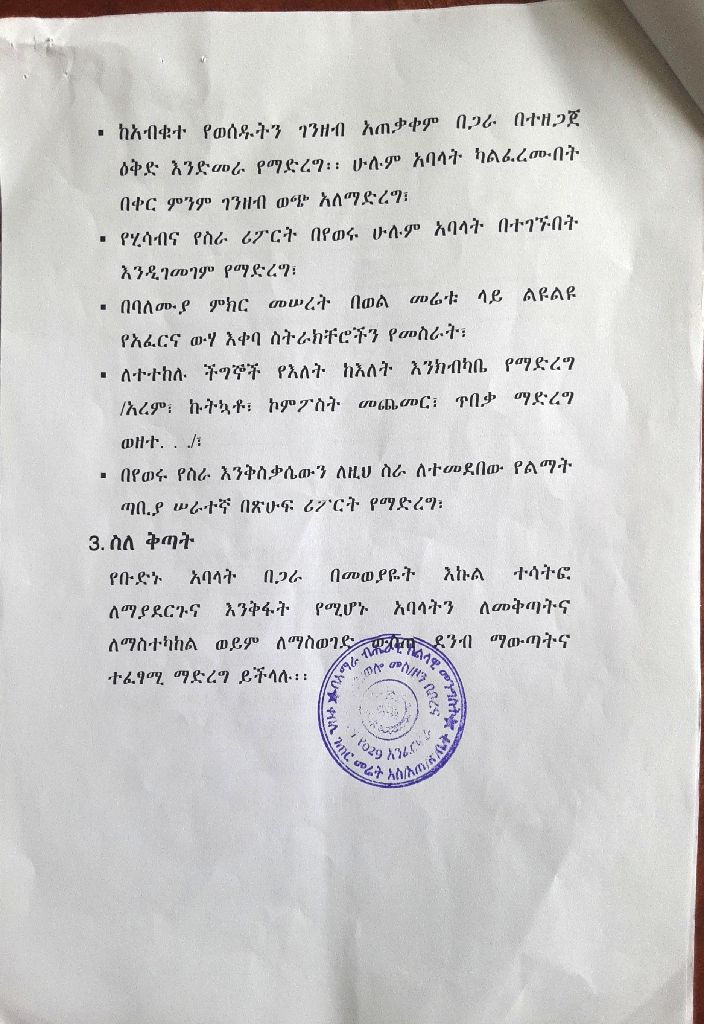 ▪ ከአብቁተ የወሰዱትን ገንዘብ አጠቃቀም በጋራ በተዘጋጀ
ዕቅድ እንድመራ የማድረግ፡፡ ሁሉም አባላት ካልፈረሙበት
በቀር ምንም ገንዘብ ወጭ አለማድረግ፣
▪ የሂሳብና የስራ ሪፖርት በየወሩ ሁሉም አባላት በተገኙበት
እንዲገመገም የማድረግ፣
▪ በባለሙያ ምክር መሠረት በወል መሬቱ ላይ ልዩልዩ
የአፈርና ውሃ እቀባ ስትራክቸሮችን የመስራት፣
▪ ለተተከሉ ችግኞች የእለት ከእለት እንክብካቤ የማድረግ
/አረም፣ ኩትኳቶ፣ ኮምፖስት መጨመር፣ ጥበቃ ማድረግ
ወዘተ. . ./፣
▪ በየወሩ የስራ እንቅስቃሴውን ለዚህ ስራ ለተመደበው የልማት
ጣቢያ ሠራተኛ በጽሁፍ ሪፖርት የማድረግ፣
3. ስለ ቅጣት
የቡድኑ አባላት በጋራ በመወያየት እኩል ተሳትፎ
ለማያደርጉና እንቅፋት የሚሆኑ አባላትን ለመቅጣትና
ለማስተካከል ወይም ለማስወገድ ውስጠ ደንብ ማውጣትና
ተፈፃሚ ማድረግ ይችላሉ፡፡
በአማራ ብሔራዊ ክልላዊ መንግስት
ወሎ መስ/ዞን በቦረና
ገጠር መሬት አስ/አጠ/ጽ/ቤት